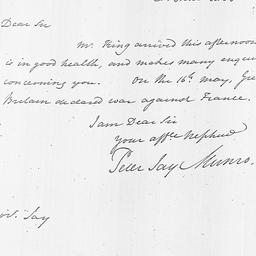 Dear Sir
Mr. King arrived this afternoon
is in good health, and makes many enqui
concerning you. On the 16th. may, Gre
Britain declared war against France.
I am Dear Sir
your affte Nephew
Peter Jay Munro.
Jay